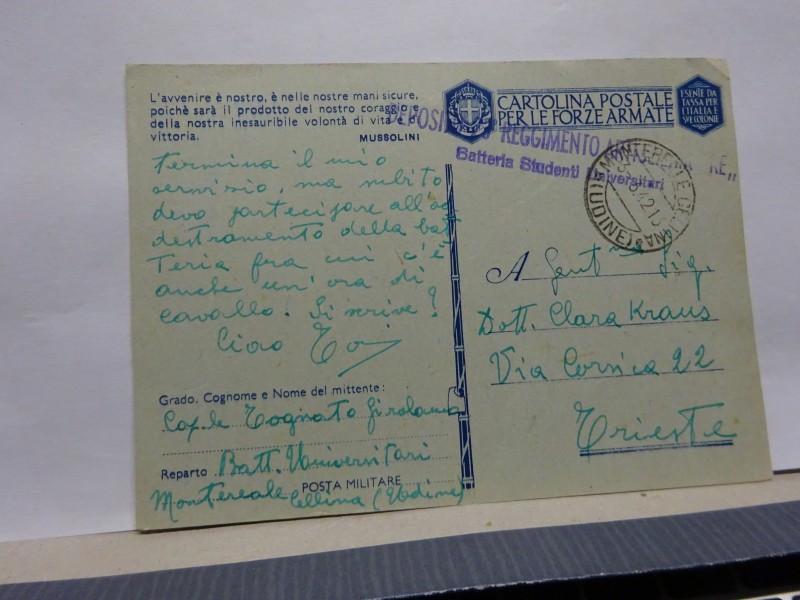 L'avvenire è nostro, è nelle nostre mani sicure,
poichè sarà il prodotto del nostro coraggio e
della nostra inesauribile volontà di vita e di
vittoria.
MUSSOLINI
1
termina il mio
servizio, ma subito
devo partecipare all'ad
destramento della bat
teria fra cui c'è
anche un'ora di
cavallo. Si scrive?
Ciao
Grado. Cognome e Nome del mittente:
Cap.le Tognato Girolamo
Reparto Batt. Universitari
POSTA MILITARE
Montereale Cellina (Udine)
CARTOLINA POSTALE
PER LE FORZE ARMATE
ESENTE DA
TASSA PER
L'ITALIA E
SVE COLONIE
DEPOSITO REGGIMENTO
Batteria Studenti Universitari
MONTEREALE CELLINA
(UDINE)
A Gent Sig.
Dott. Clara Kraus
Via Corsica 22
Trieste